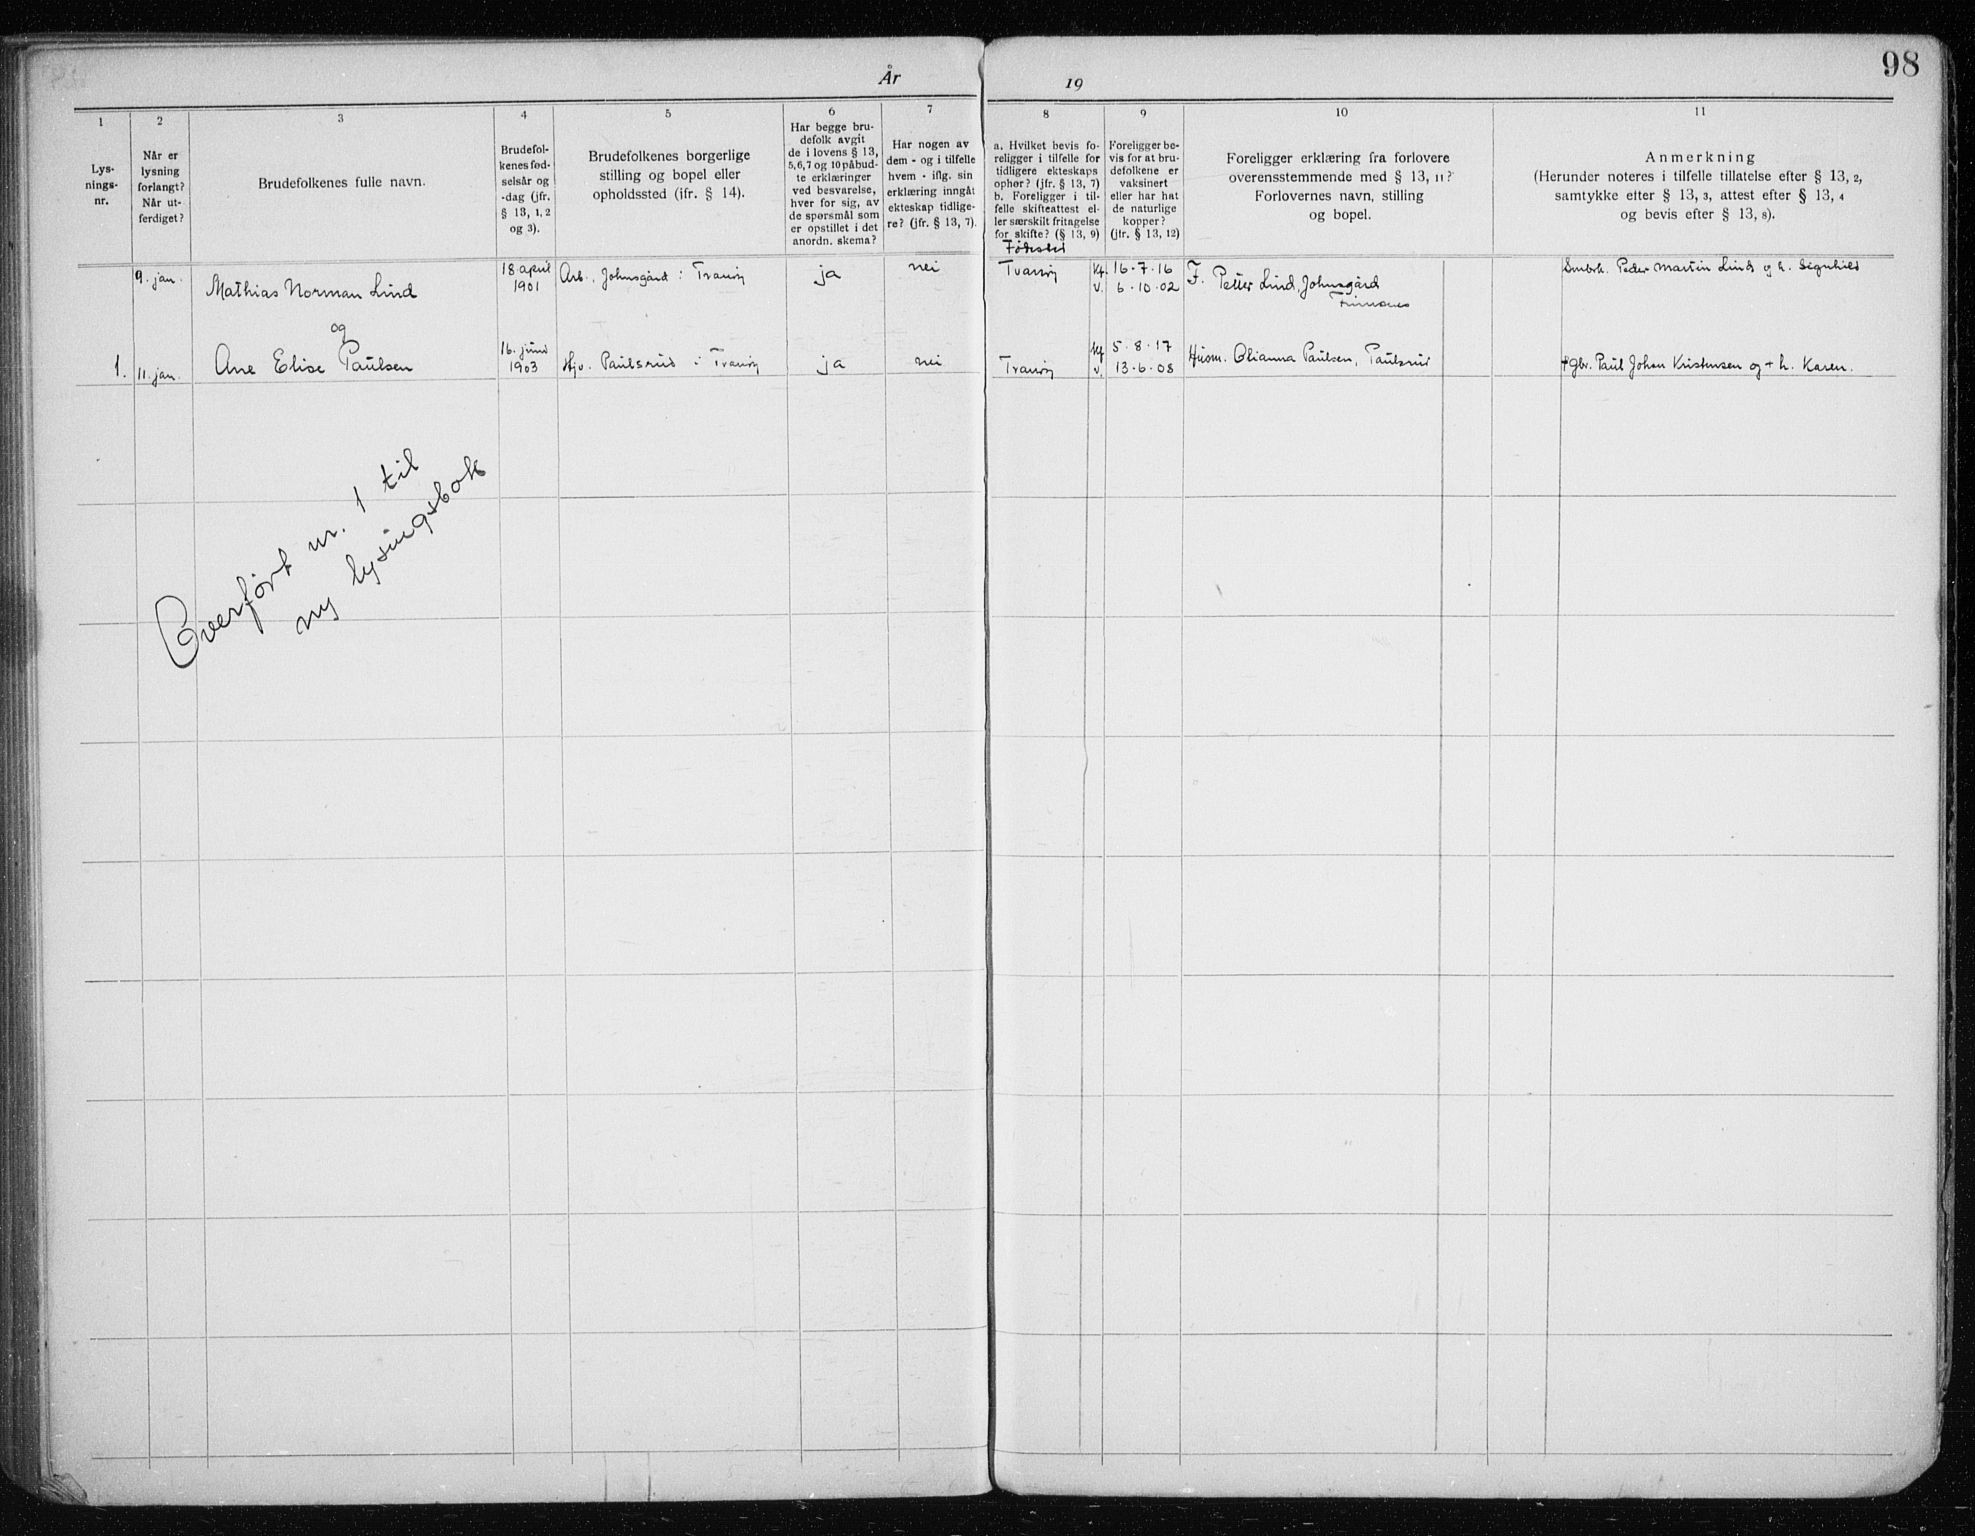 98
År 19
1 2 3 4 5 6 7 8 9 10 11
Lys-
nings-
nr.
Når er
lysning
forlangt?
Når ut-
ferdiget?
Brudefolkenes fulle navn.
Brudefol-
kenes fød-
selsår og
-dag (jfr.
§ 13, 1, 2
og 3).
Brudefolkenes borgerlige
stilling og bopel eller
opholdssted (ifr. § 14).
Har begge bru-
defolk avgit
de i lovens § 13,
5,6,7 og 10 påbud-
te erklæringer
ved besvarelse,
hver for sig, av
de spørsmål som
er opstillet i det
anordn. skema?
Har nogen av
dem - og i tilfelle
hvem - iflg. sin
erklæring inngåt
ekteskap tidlige-
re? (jfr. § 13, 7).
a. Hvilket bevis fo-
religger i tilfelle for
tidligere ekteskaps
ophør? (jfr. § 13, 7)
b. Foreligger i til-
felle skifteattest el-
ler særskilt fritagelse
for skifte? (§ 13, 9)
Fødested
Foreligger be-
vis for at bru-
defolkene er
vaksinert
eller har hat
de naturlige
kopper?
(jfr. § 13, 12)
Foreligger erklæring fra forlovere
overensstemmende med § 13, 11?
Forlovernes navn, stilling
og bopel.
Anmerkning
(Herunder noteres i tilfelle tillatelse efter § 13, 2,
samtykke efter § 13, 3, attest efter § 13, 4
og bevis efter § 13, 8).
9. jan.
Mathias Norman Lind
18. april
1901
Arb., Johnsgård i Tranøy
ja
nei
Tranøy
Kf. 16-7-16
v. 6-10-02
F. Petter Lind, Johnsgård
Finnsnes
Smbrk. Peder Martin Lind og h. Signhild
og
1.
11. jan.
Ane Elise Paulsen
16. juni
1903
Hjv. Paulsrud i Tranøy
ja
nei
Tranøy
Kf 5-8-17
v. 13-6-08
Husm. Olianna Paulsen, Paulsrud
+ Gbr. Paul Johan Kristensen og + h. Karen.
Overført nr. 1 til
ny lysingsbok